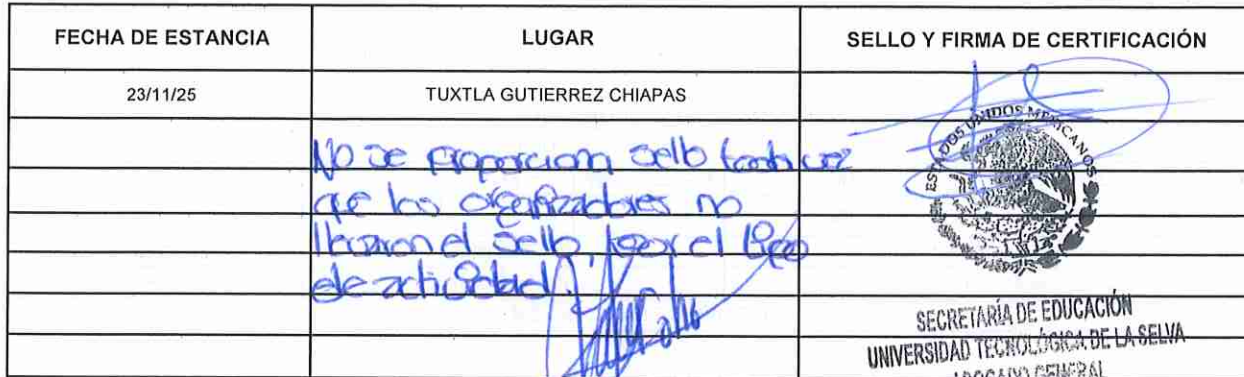 FECHA DE ESTANCIA LUGAR SELLO Y FIRMA DE CERTIFICACIÓN
23/11/25 TUXTLA GUTIERREZ CHIAPAS
No se proporciona sello toda vez
que los organizadores no
llevaron el sello, por el tipo
de actividad.
ESTADOS UNIDOS MEXICANOS
SECRETARÍA DE EDUCACIÓN
UNIVERSIDAD TECNOLÓGICA DE LA SELVA
ABOGADO GENERAL